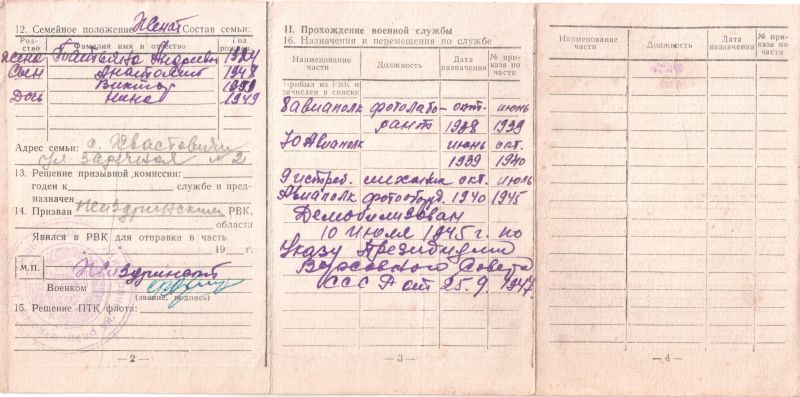 12. Семейное положение Женат Состав семьи:
Родство Фамилия имя и отчество Год рожден.
Жена Андреевна 1924
Сын Анатолий 1948
Виктор 1950
Дочь Нина 1949
Адрес семьи: с. Хвастовичи
ул Заречная № 2
13. Решение призывной комиссии:
годен к службе и пред-
назначен
14. Призван РВК,
области
Явился в РВК для отправки в часть
19 г.
М.П.
Военком
(звание, подпись)
15. Решение ПТК флота:
— 2 —
II. Прохождение военной службы
16. Назначения и перемещения по службе
Наименование части Должность Дата назначения № приказа по части
Прибыл из РВК и
зачислен в списки
8 авиаполк фотолабо- окт. июнь
рант 1938 1939
10 Авиаполк июнь окт.
1939 1940
9 истреб. механик окт. июль
Авиаполк фотооборуд. 1940 1945
Демобилизован
10 июля 1945 г. по
Указу Президиума
Верховного Совета
СССР от 25.9. 1947.
— 3 —
Наименование части Должность Дата назначения № приказа по части
— 4 —